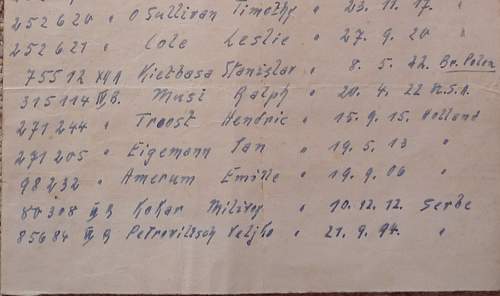 252620 " O Sullivan Timothy " 23. 11. 17. "
252621 " Cole Leslie " 27. 9. 20 "
75512 XVII Kietbasa Stanislav " 8. 5. 22. Br. Polen
315114 IV B. Musi Ralph " 20. 4. 22 U.S.A.
271244 " Troost Hendric " 15. 9. 15. Holland
271205 " Eigemann Jan " 19. 5. 13 "
98232 " Amerum Emille " 19. 9. 06 "
80308 B Kokar Milivoj " 10. 12. 12. Serbe
85684 B Petrovitsch Veljko " 21. 9. 94. "